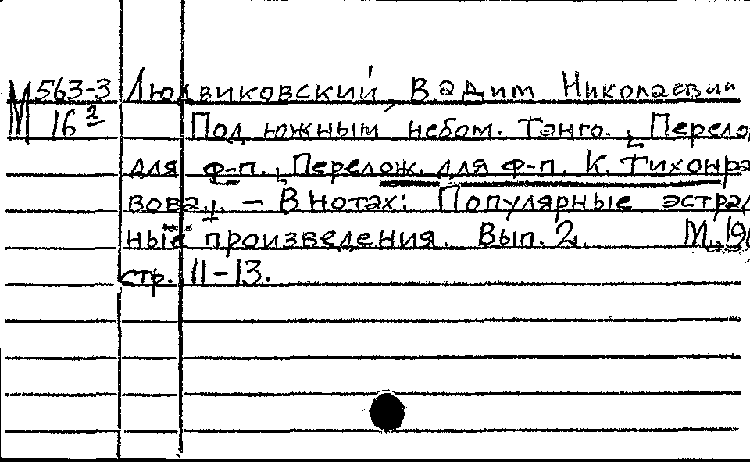 М 563-3 Людвиковский, Вадим Николаевич
16 2 Под южным небом. Танго. [Перелож.
для ф-п.] Перелож. для ф-п. К. Тихонра-
вова]. – В нотах: Популярные эстрад-
ные произведения. Вып. 2. М., 196
стр. 11-13.